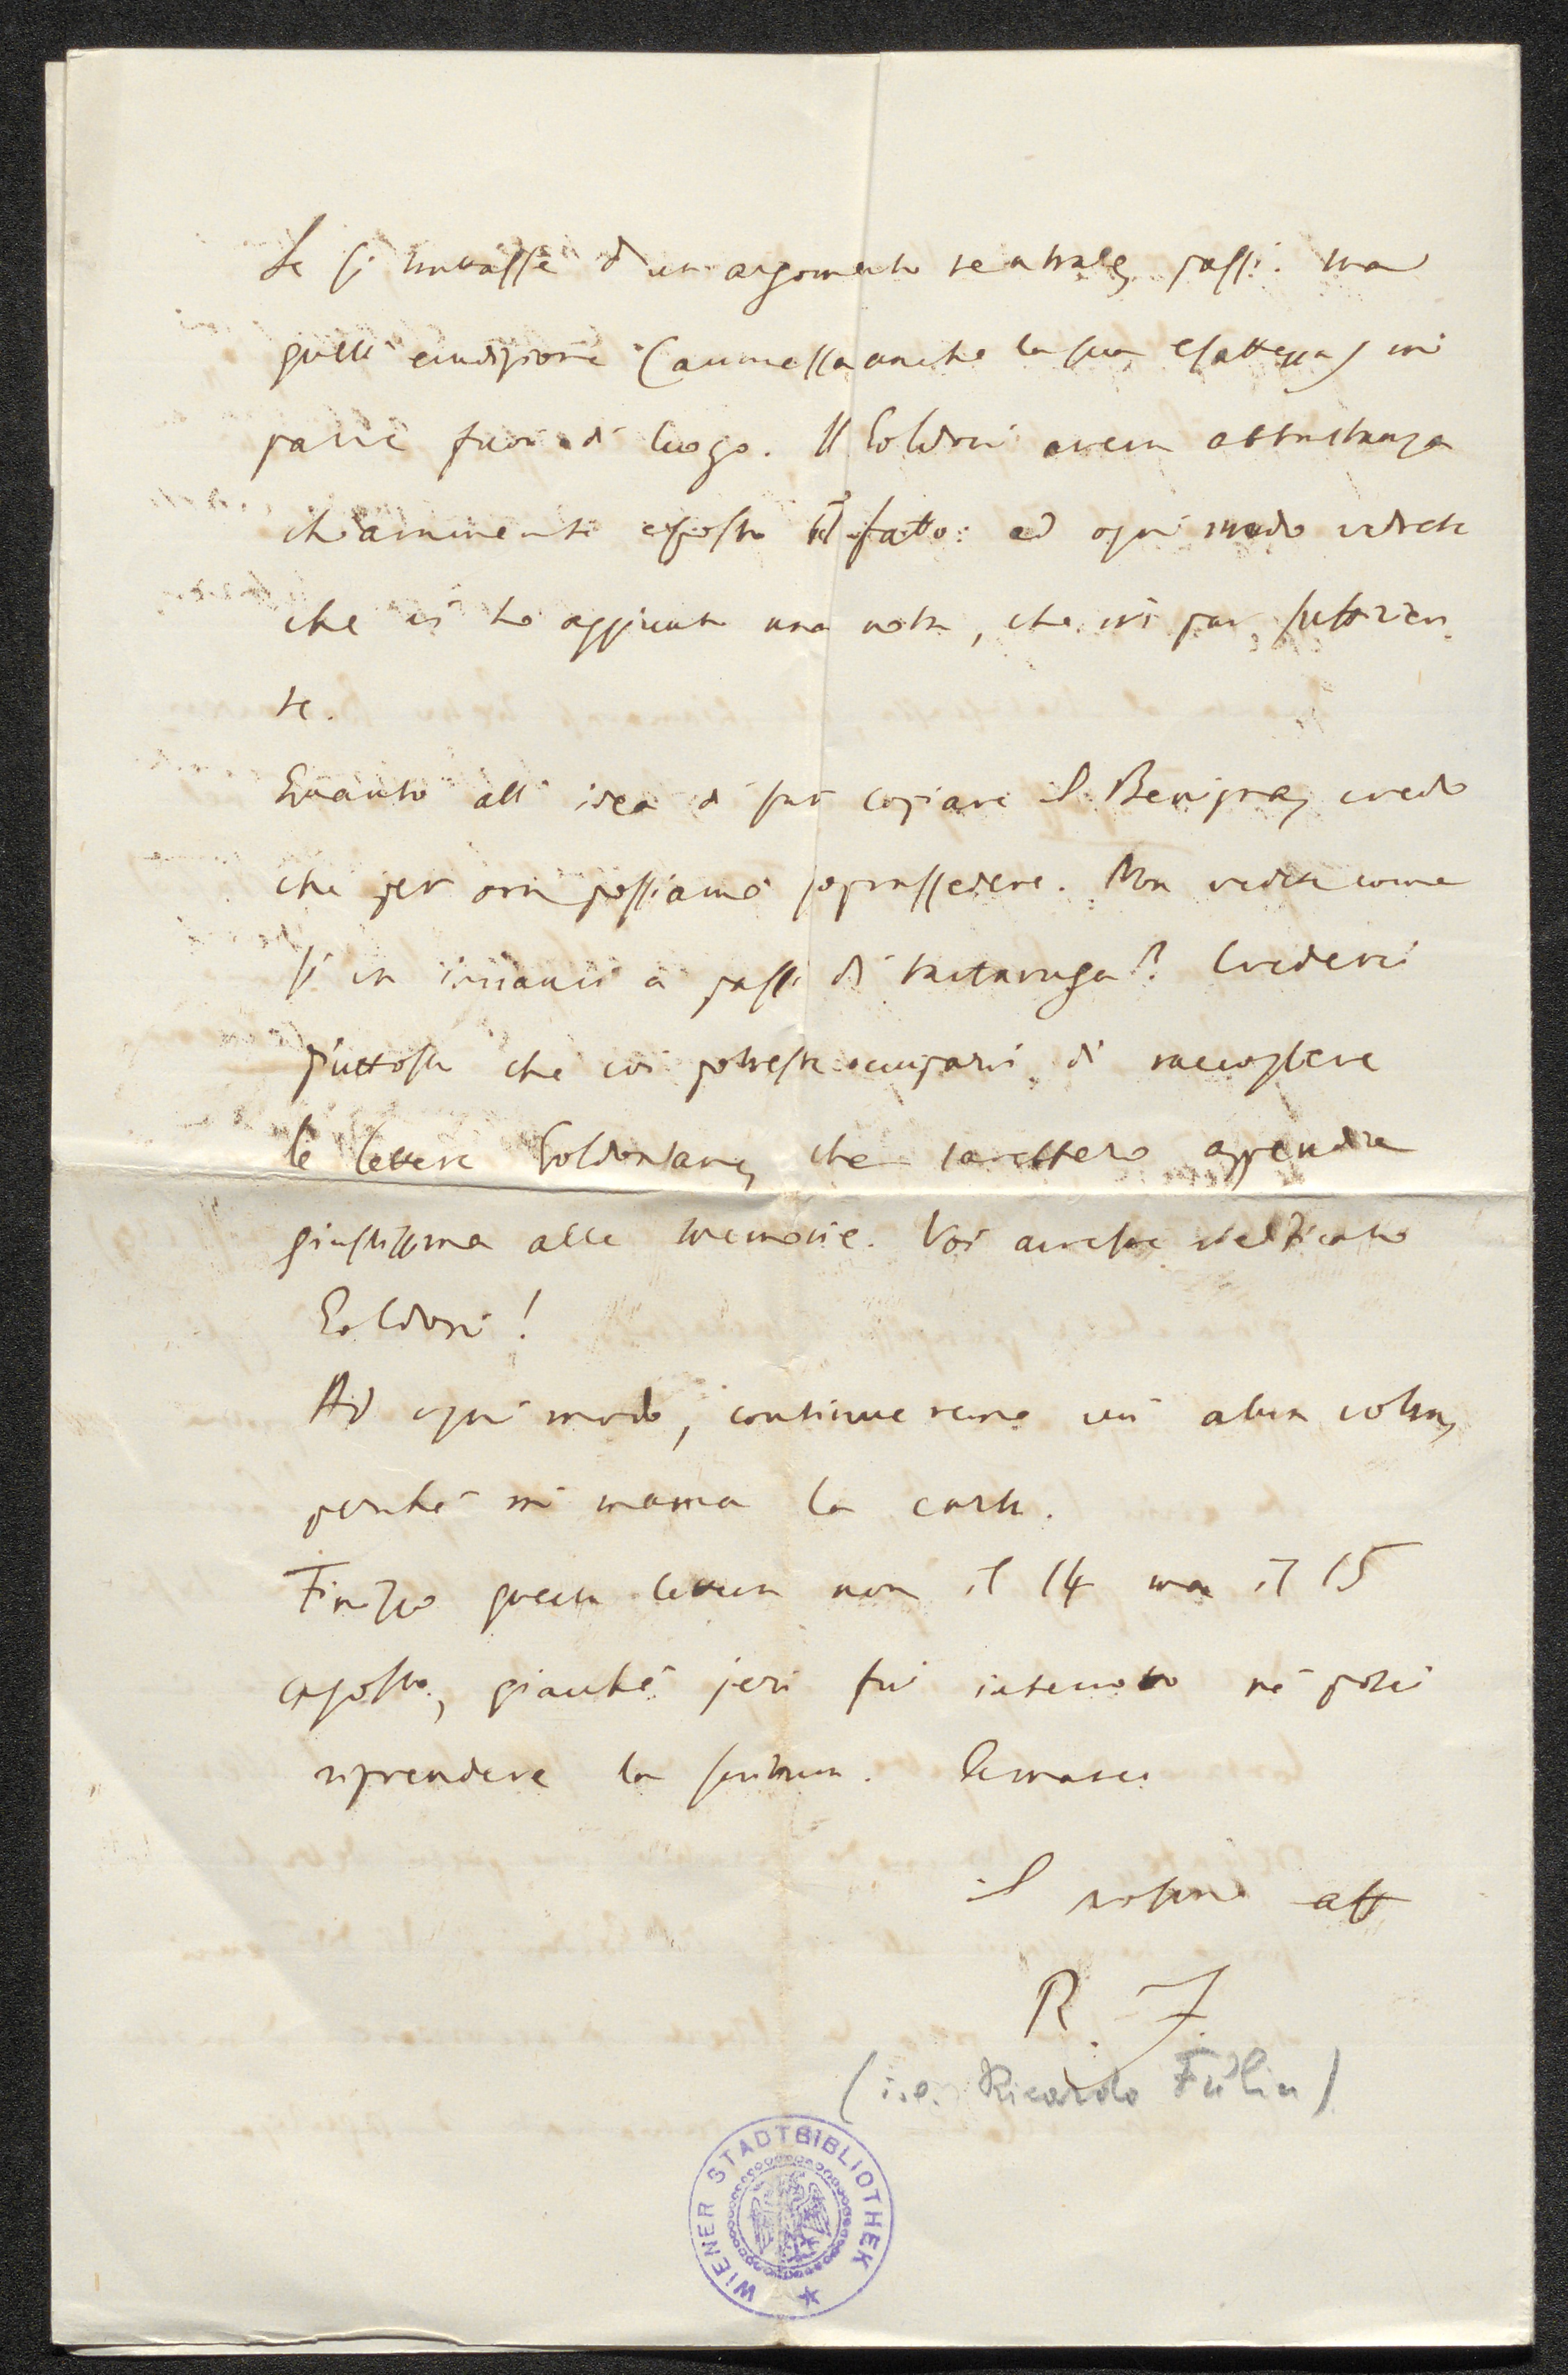 Se si trattasse d'un argomento teatrale, passi: ma
quell'erudizione (ammessa anche la sua esattezza) mi
parve fuori di luogo. Il Goldoni aveva abbastanza
chiaramente esposto il fatto: ad ogni modo vedrete
che ci ho aggiunto una nota, che mi par sufficien-
te.
Quanto all'idea di far copiare il Benigna, credo
che per ora possiamo soprassedere. Non vedete come
si va innanzi a passi di tartaruga? Crederei
piuttosto che voi potreste occuparvi di raccogliere
le lettere Goldoniane, che sarebbero appendice
giustissima alle memorie. Voi avreste
Goldoni!
Ad ogni modo, continueremo un'altra volta,
perché mi manca la carta.
Finisco questa lettera non il 14 ma il 15
agosto, giacché jeri fui interrotto né potei
riprendere la scrittura. Amatemi
il vostro aff
R. F.
(i.e. Ricardo Fulin)
WIENER STADTBIBLIOTHEK